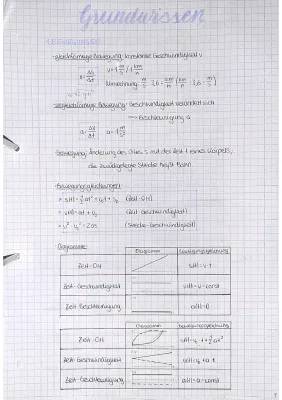 Grundwissen
1. BEWEGUNGEN
- gleichförmige Bewegung: konstante Geschwindigkeit v
v = Δs/Δt v = 1 m/s / 1 km/h
Umrechnung: m/s · 3,6 = km/h km/h : 3,6 = m/s
- Bewegung: Geschwindigkeit verändert sich
→ Beschleunigung a
a = Δv/Δt a = 1 m/s²
Bewegung: Änderung des Ortes s mit der Zeit t eines Körpers,
die zurückgelegte Strecke heißt Bahn
- Bewegungsgleichungen:
s(t) = ½at² + v₀t + s₀ (Zeit-Ort)
v(t) = at + v₀ (Zeit-Geschwindigkeit)
v² - v₀² = 2as (Strecke-Geschwindigkeit)
Diagramme:
Diagramm Bewegungsgleichung
Zeit-Ort s(t) = v·t
Zeit-Geschwindigkeit v(t) = v = const
Zeit-Beschleunigung a(t) = 0
Diagramm Bewegungsgleichung
Zeit-Ort s(t) = v₀·t + ½at²
Zeit-Geschwindigkeit v(t) = v₀ + a·t
Zeit-Beschleunigung a(t) = a = const